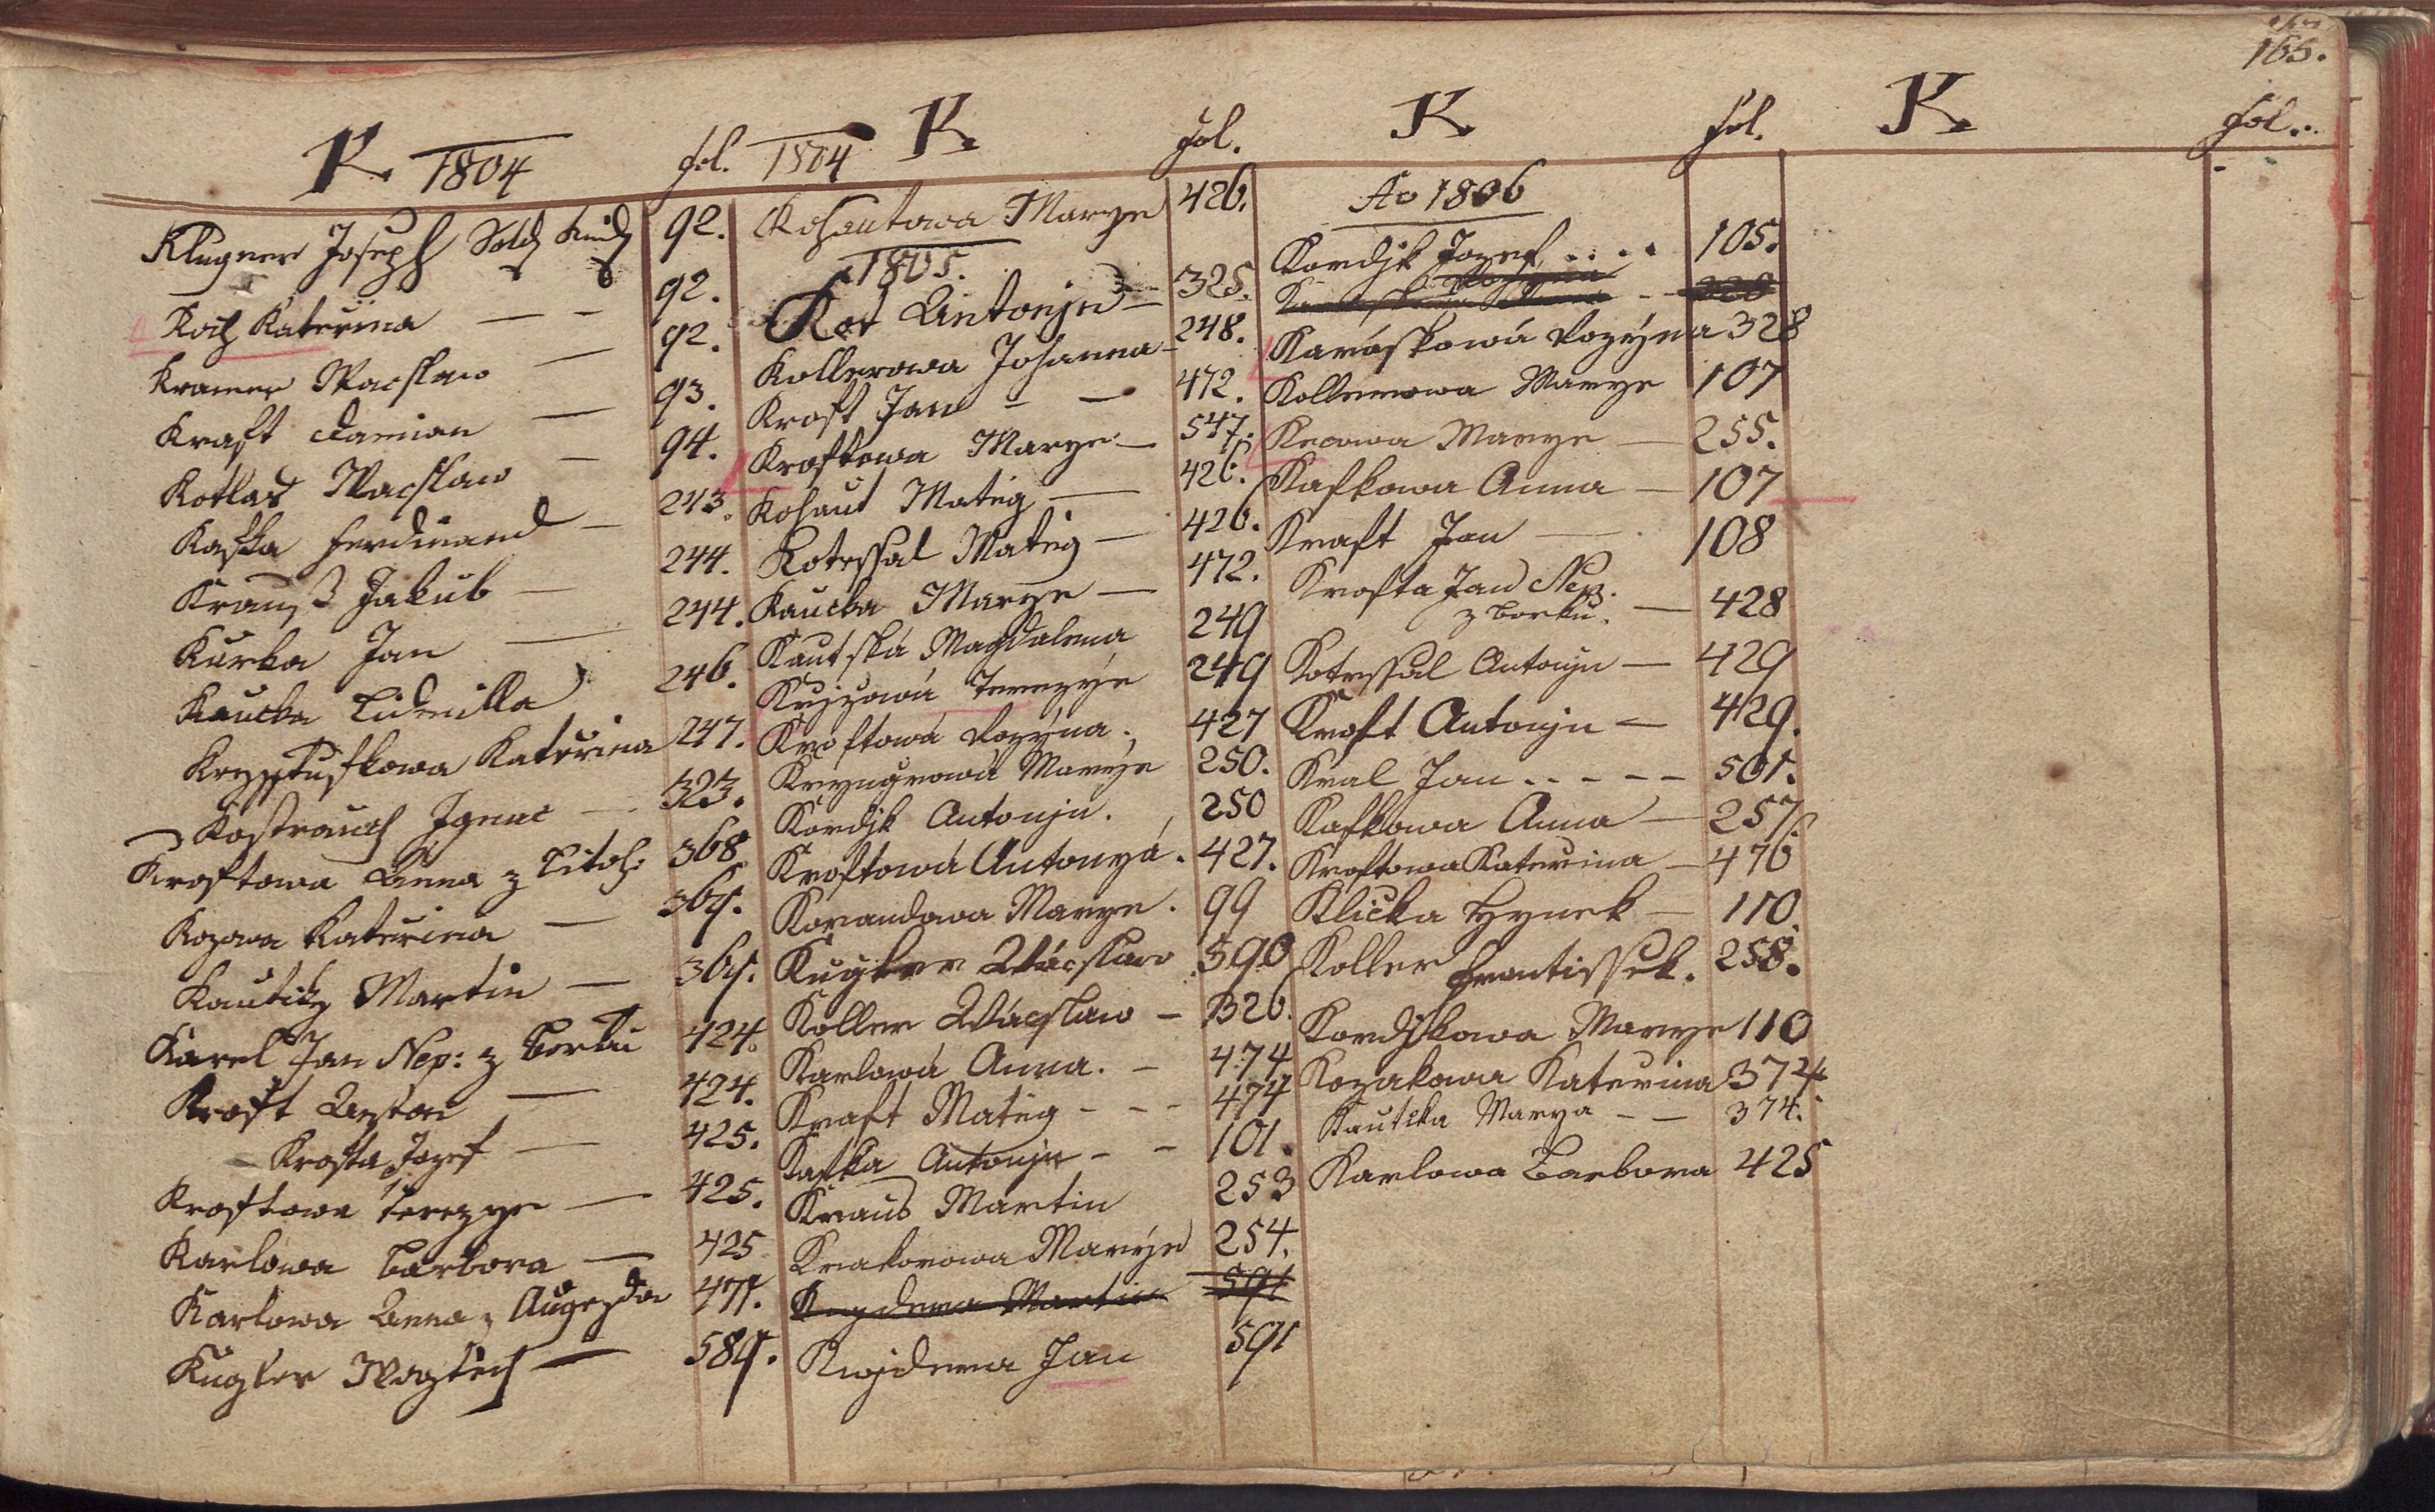 165.
K 1804 fol.
Klugner Joseph Sold Kind 92.
Koch Katerina — — 92.
Kramer Wacslaw — 92.
Kraft Damian — 93.
Kotlas Wacslaw — 94.
Kaska Ferdinand — 243.
Krauß Jakub — 244.
Kurka Jan — 244.
Kaucka Lidmilla 246.
Katerina 247.
Kostrauch Ignac — 323.
Kroftowa Anna z Litoh: 368
Kozowa Katerina — 369.
Kautský Martin — 369.
Karel Jan Nep: z Borku 424.
Kroft — 424.
Krofta Jozef — 425.
Kroftowa Terezye — 425.
Karlowa Barbora — 425
Karlowa Anna z Augezda 471.
Kugler Wogtech — 589.
1804 K fol.
Kohautowa Marye 426.
1805.
Kot Antonjn — 325.
Kollerowa Johanna — 248.
Kroft Jan — — 472.
Kroftowa Marye — 547.
Kohaut Mateg — 426.
Kotessal Mateg — 426.
Kaucka Marye — 472.
Kautská Magdalena 249
Terezye 249
Kroftowá Rozyna. 427
Marye 250.
Kordjk Antonjn. 250
Kroftowá Antonyá. 427.
Korandowa Marye. 99
Kugler Wácslaw 590
Koller Wácslaw — 326.
Karlowá Anna. — 474
Kraft Mateg - - - 474
Kafka Antonjn - - 101.
Kraus Martin 253
Krakorowa Marye 254.
Martin 591
Kwjdera Jan 591
K fol.
Ao 1806
Kordjk Jozef .... 105.
Karáskowá Rozyna 328
Kollerowa Marye 107
Marye — 255.
Kafkowa Anna — 107
Kraft Jan — 108
Krofta Jan Nep.
z Borku. — 428
Kotessal Antonjn — 429
Kroft Antonjn — 429.
Kral Jan - - - - - 501.
Kafkowa Anna — 257
Kroftowa Katerina — 476
Klicka Hynek — 110.
Koller Frantissek. 258.
Kordjkowa Marye 110
Kozakowa Katerina 374
Kautska Marya — — 374.
Karlowa Barbora 425
K fol.